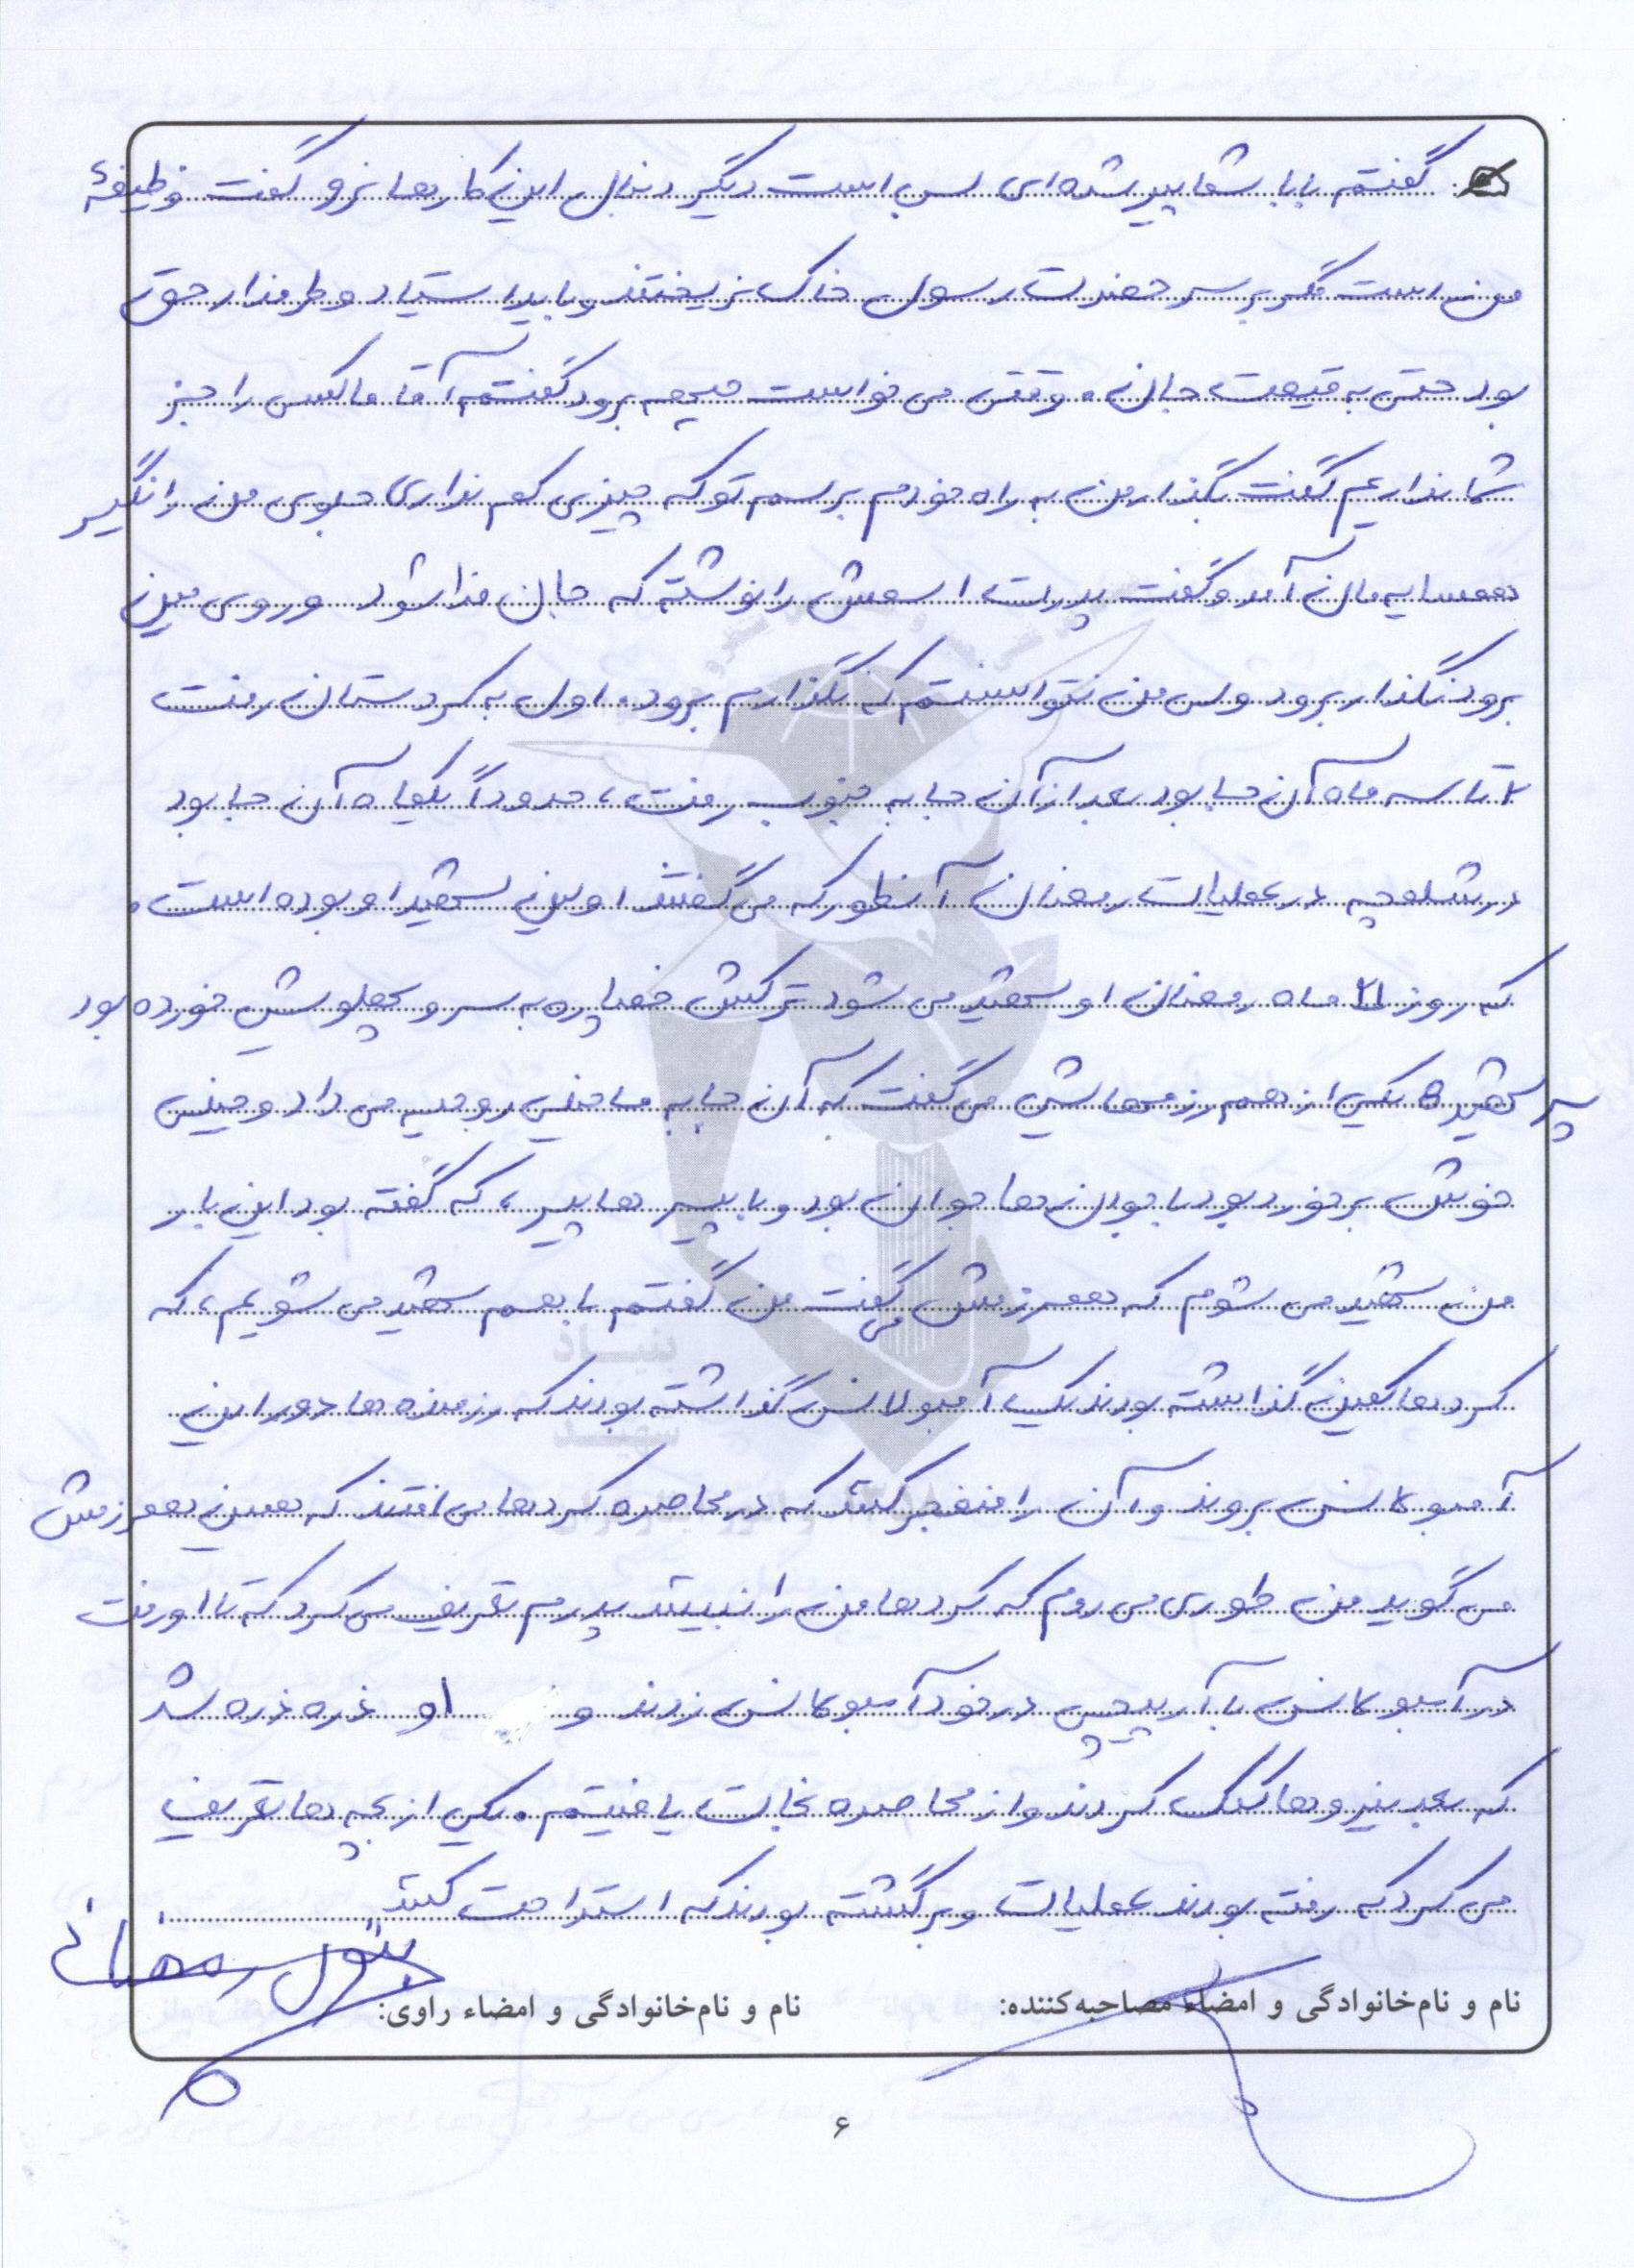 گفتم بابا شما پیر شده‌ای بس است دیگر دنبال این کارها نرو گفت وظیفهٔ
من است مگر بر سر حضرت رسول خاک نریختند و باید ایستاد و طرفدار حق
بود حتی به قیمت جان. وقتی می خواست جبهه برود گفتم آقا ما کسی را جز
شما نداریم گفت بگذار من به راه خودم برسم تو که چیزی کم نداری جلوی من را نگیر
همسایه‌مان آمد و گفت پدرت اسمش را نوشته که جان فدا شود و روی مین
برود نگذار برود ولی من نتوانستم که نگذارم برود. اول به کردستان رفت
۲ تا سه ماه آن جا بود بعد از آن جا به جنوب رفت، حدوداً یکماه آن جا بود
در شلمچه در عملیات رمضان آنطور که می گفتند اولین شهید او بوده است.
که روز ۲۱ ماه رمضان او شهید می شود ترکش خمپاره به سر و پهلویش خورده بود
یکی از هم رزمهایش می گفت که آن جا به ما خیلی روحیه می داد و خیلی
خوش برخورد بود با جوان ها جوان بود و با پیر ها پیر، که گفته بود این بار
من شهید می شوم که همرزمش می گفت من گفتم با هم شهید می شویم، که
کردها کمین گذاشته بودند یک آمبولانس گذاشته بودند که رزمنده ها دور این
آمبولانس بروند و آن را منفجر کنند که در محاصره کردها می افتند که همین همرزمش
می گوید من طوری می روم که کردها من را نبینند پدرم تعریف می کرد که تا او رفت
در آمبولانس با آرپیچی در خود آمبولانس زدند و او ذره ذره شد
که بعد نیروها کمک کردند و از محاصره نجات یافتیم. یکی از بچه ها تعریف
می کرد که رفته بودند عملیات و برگشته بودند که استراحت کنند
بتول رمضانی
نام و نام‌خانوادگی و امضاء مصاحبه‌کننده: نام و نام‌خانوادگی و امضاء راوی:
۶